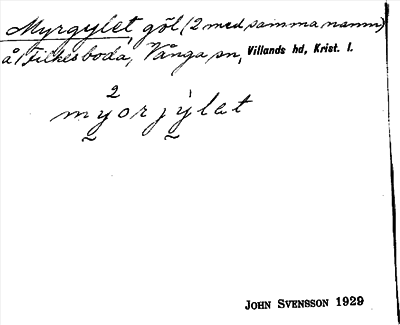 Myrgylet göl (2 med samma namn)
å Filkesboda, Vånga sn, Villands hd, Krist. l.
2
myorjýlet
JOHN SVENSSON 1929